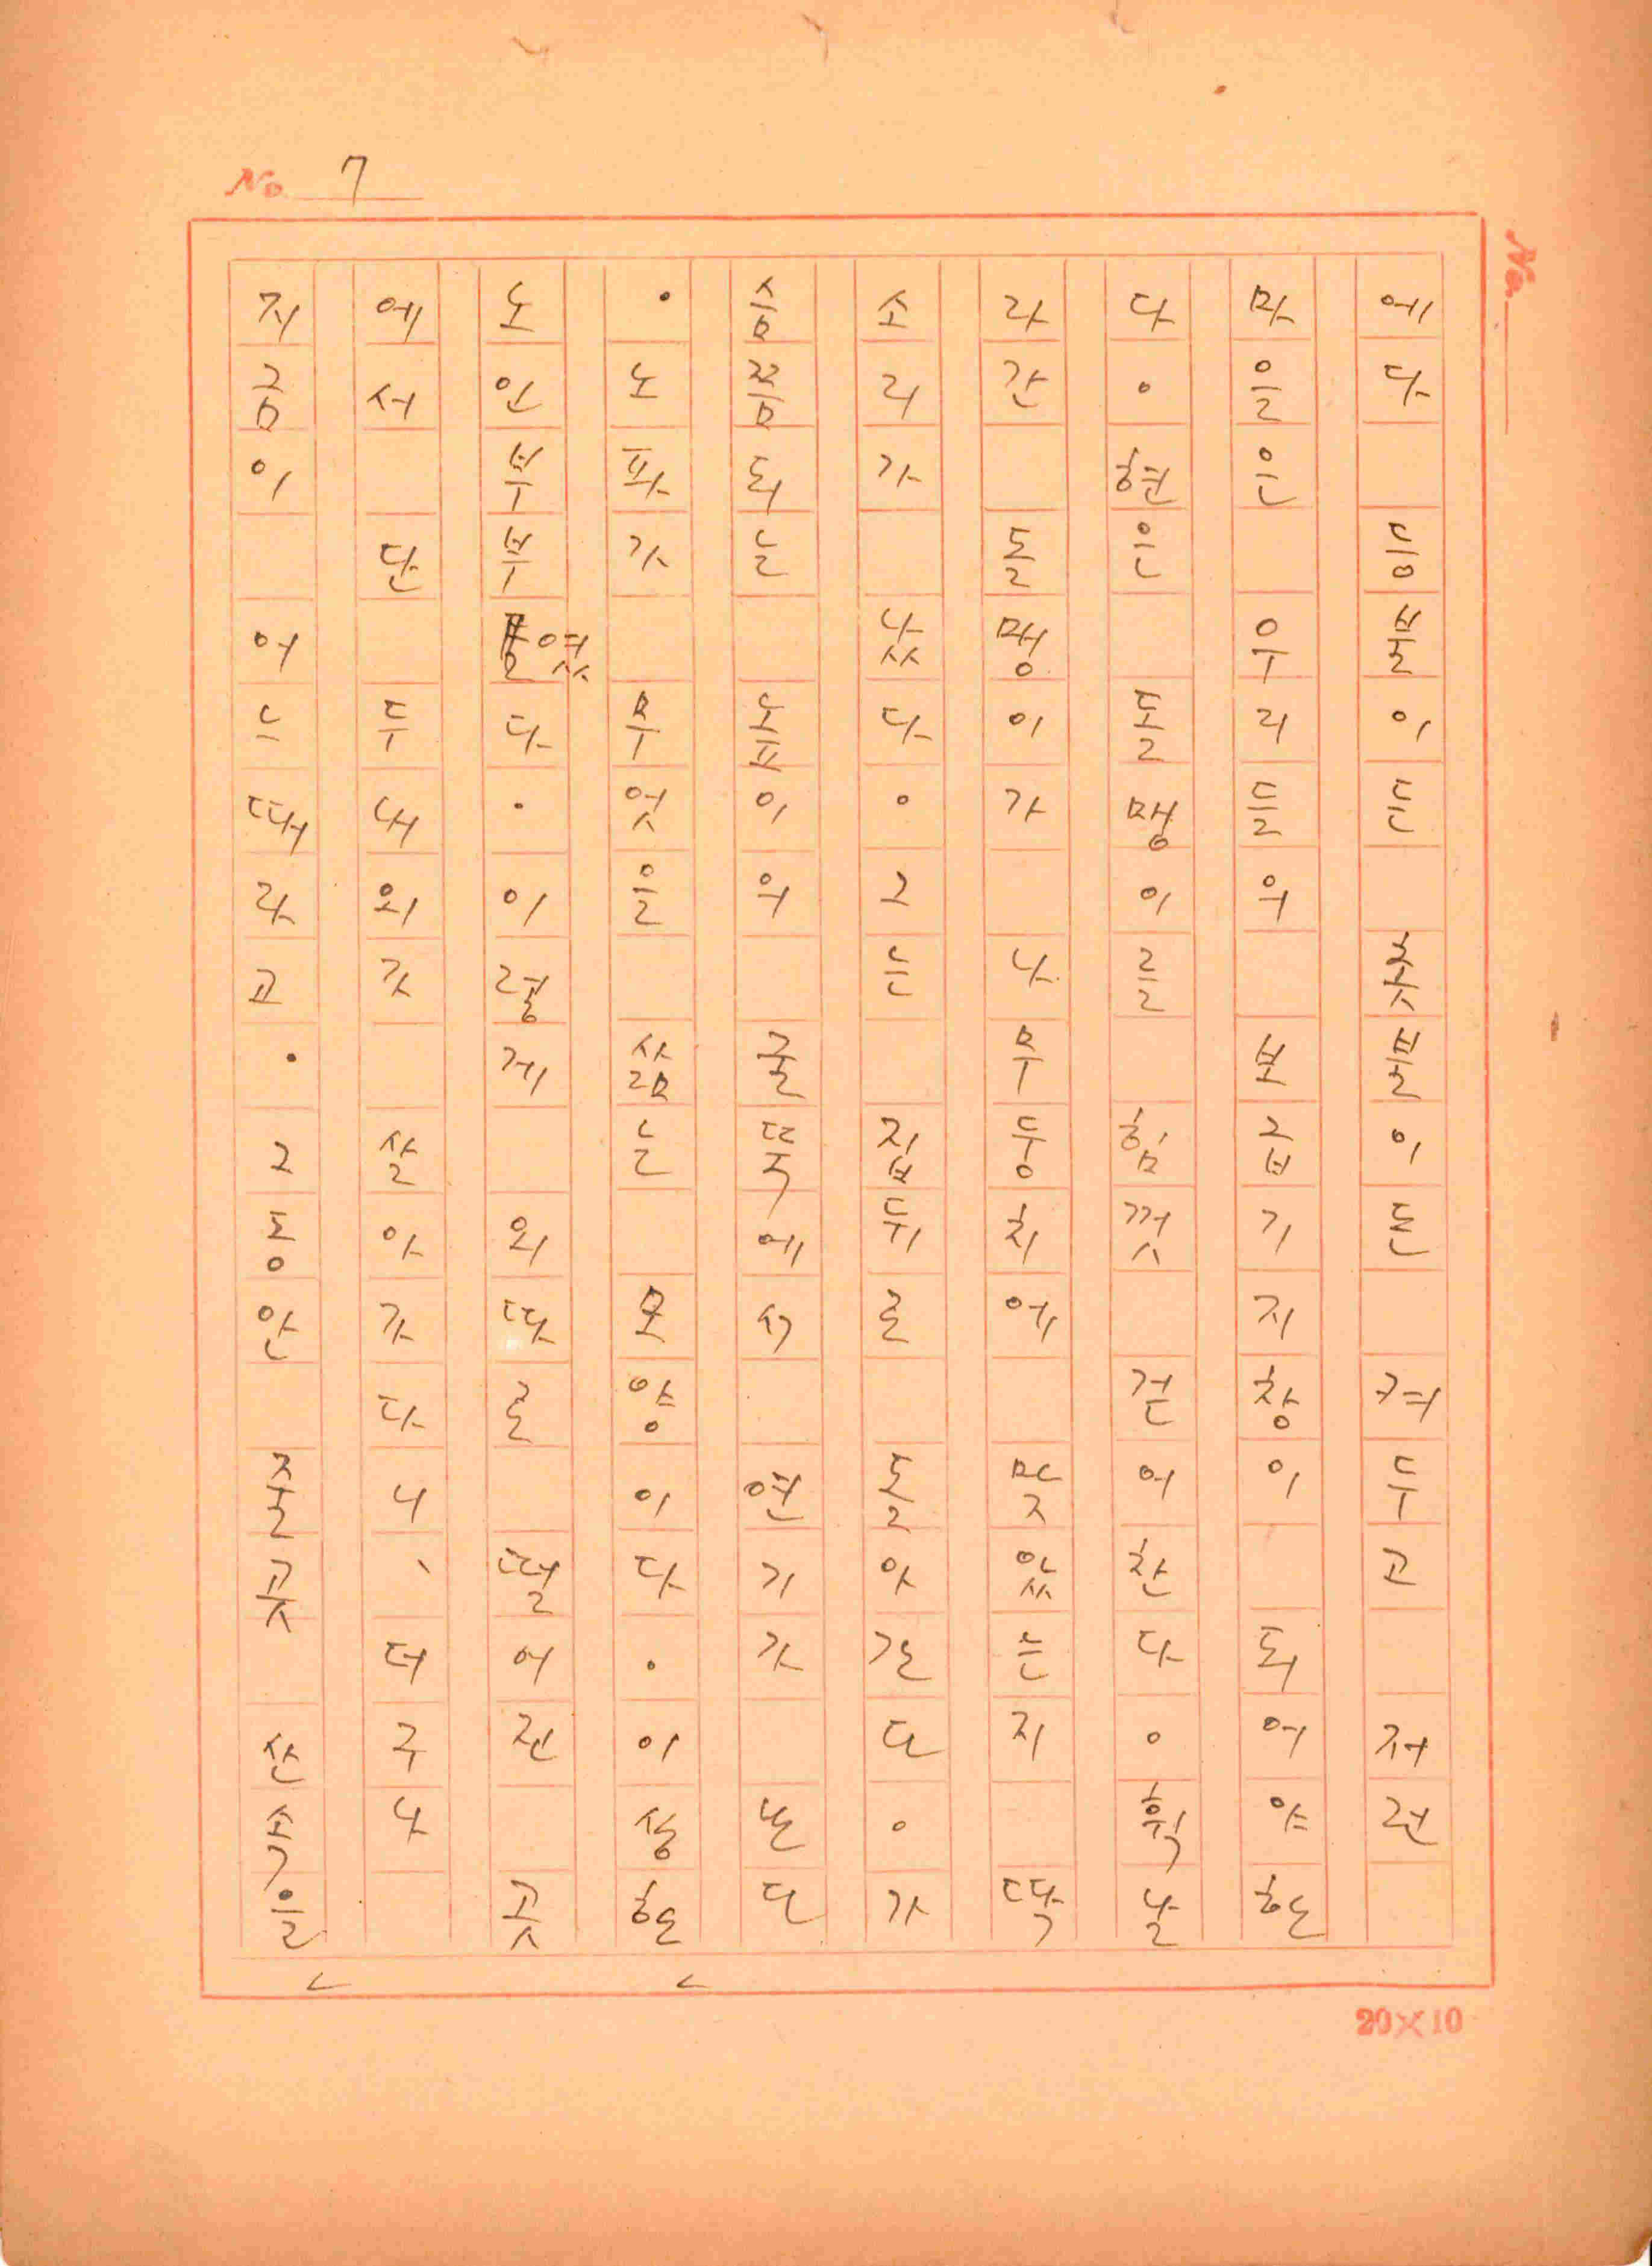 에다 등불이든 촛불이든 켜두고 저런
마을은 우리들의 보급기지창이 되어야 한
다。현은 돌맹이를 힘껏 걷어찬다。휙 날
라간 돌멩이가 나무둥치에 맞았는지 딱
소리가 났다。그는 집뒤로 돌아간다。가
슴쯤되는 높이의 굴뚝에서 연기가 난다
. 노파가 무엇을 삶는 모양이다. 이상한
노인부부였다. 이렇게 외따로 떨어진 곳
에서 단 두내외가 살아가다니, 더구나
지금이 어느때라고. 그동안 줄곳 산속을
No. 7
No.
20×10